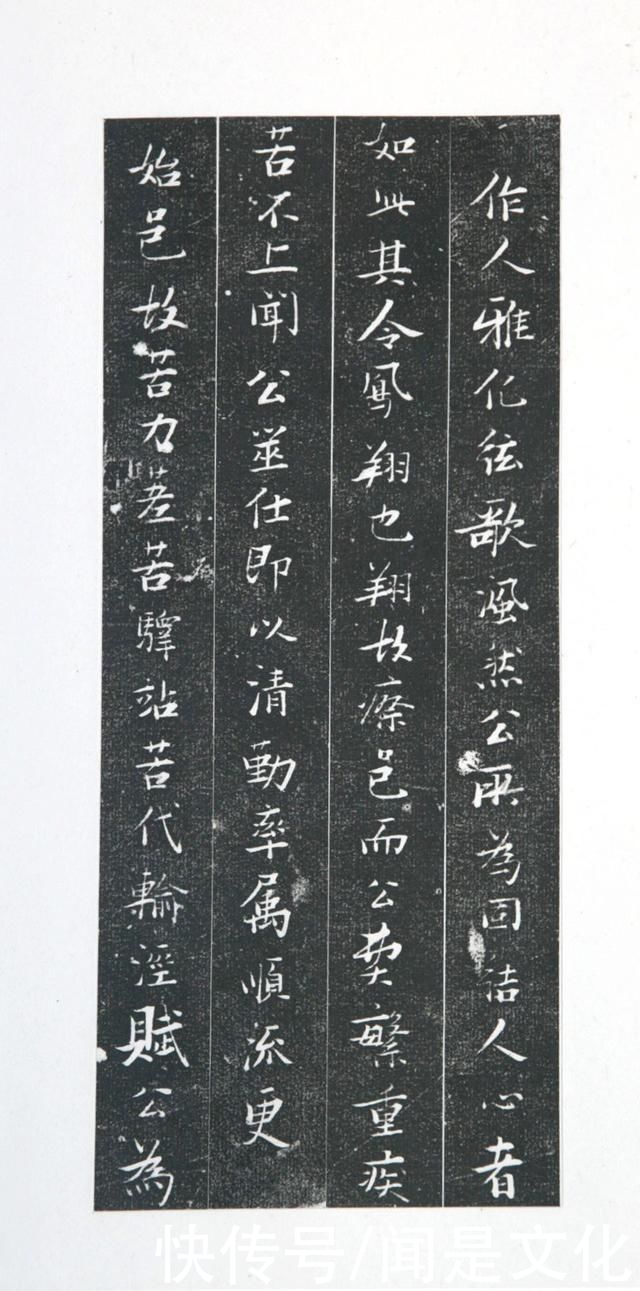 作人雅化弦歌風然公所為固結人心者
如此其令鳳翔也翔故瘵邑而公費繁重疾
苦不上聞公筮仕即以清勤率属順流更
始邑故苦力差苦驛站苦代輸涇賦公為
快传号/闻是文化